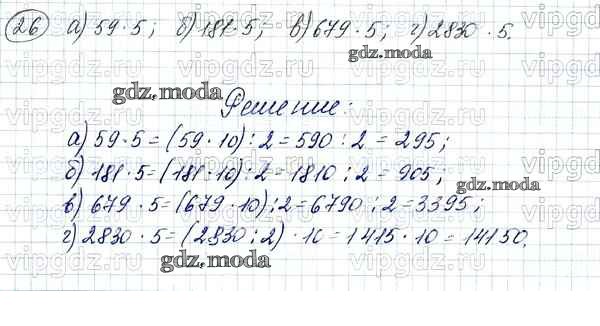 26 а) 59 · 5; б) 181 · 5; в) 679 · 5; г) 2830 · 5.
gdz.moda
gdz.moda
Решение:
а) 59 · 5 = (59 · 10) : 2 = 590 : 2 = 295;
б) 181 · 5 = (181 · 10) : 2 = 1810 : 2 = 905;
gdz.moda
в) 679 · 5 = (679 · 10) : 2 = 6790 : 2 = 3395;
г) 2830 · 5 = (2830 : 2) · 10 = 1415 · 10 = 14150.
gdz.moda